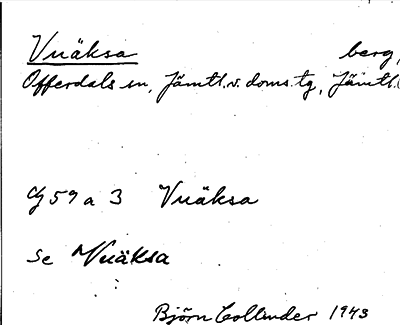 Vuäksa berg,
Offerdals sn, Jämtl. v. doms. tg, Jämtl.
59 a 3 Vuäksa
se Vuäksa
Björn Collinder 1943